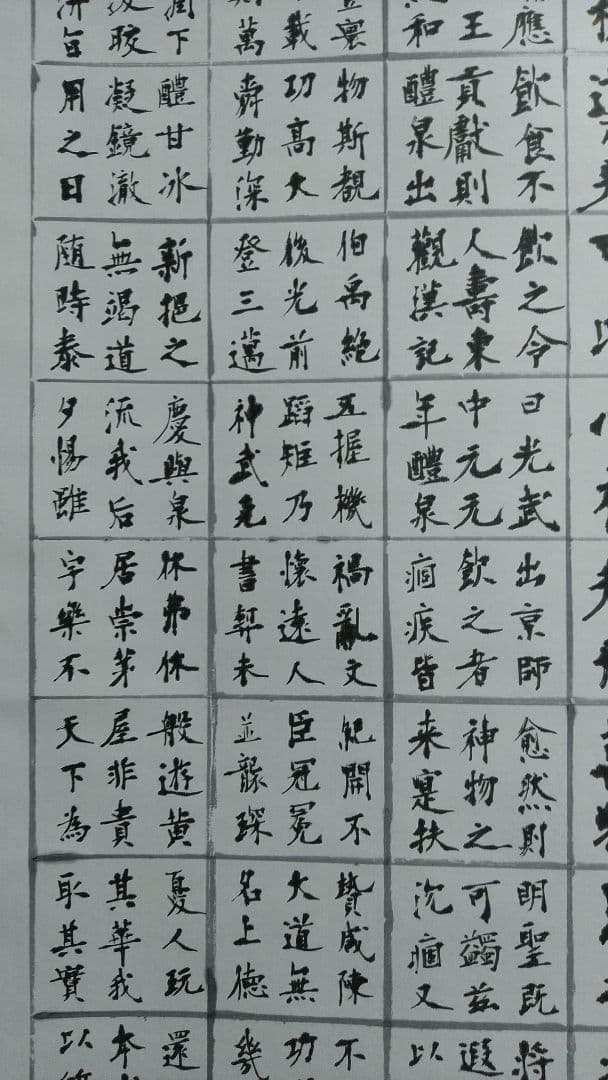 應
王
和
飲食不
貢獻則
醴泉出
飲之令
人壽東
觀漢記
曰光武
中元元
年醴泉
出京師
飲之者
痼疾皆
愈然則
神物之
来寔扶
明聖既
可蠲兹
沈痼又
將
遐
以
寰
載
萬
物斯覩
功高大
舜勤深
伯禹絶
後光前
登三邁
五握機
蹈矩乃
神武克
禍亂文
懷遠人
書契未
紀開不
臣冠冕
並襲琛
贄咸陳
大道無
名上德
不
功
幾
潤下
皎
旨
醴甘冰
凝鏡澈
用之日
新挹之
無竭道
隨時泰
慶與泉
流我后
夕惕雖
休弗休
居崇茅
宇樂不
般遊黄
屋非貴
天下為
憂人玩
其華我
取其實
還
本
以